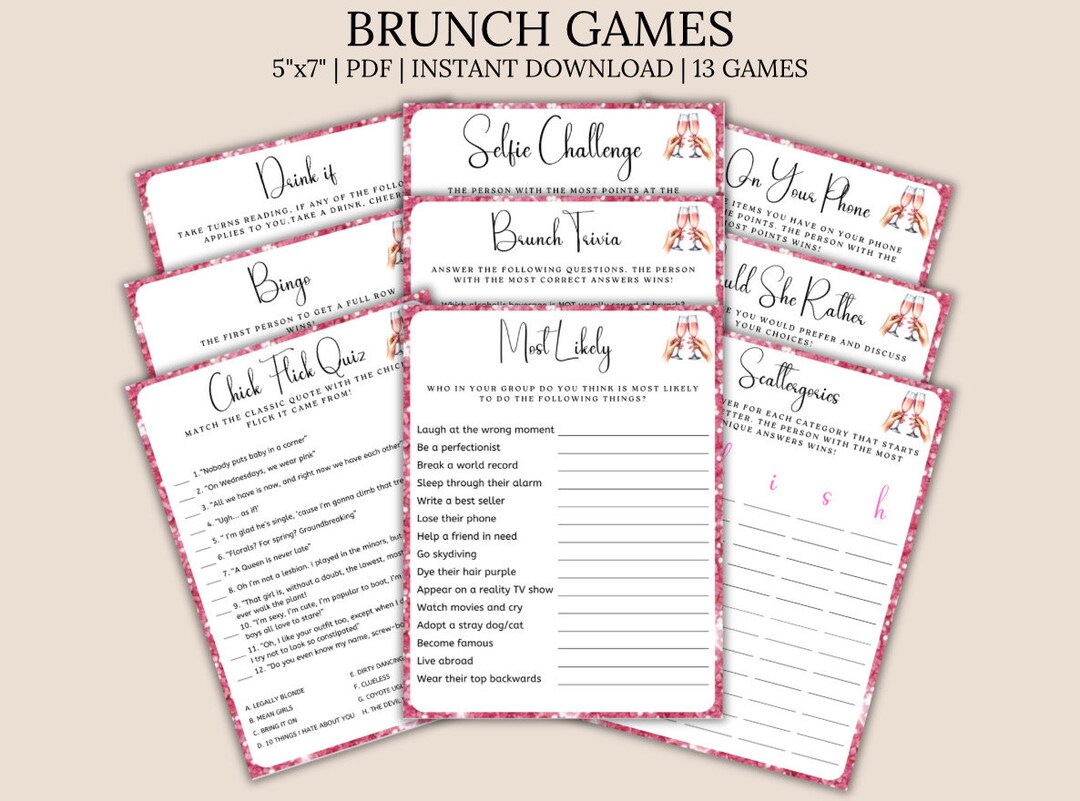 BRUNCH GAMES
5"x7" | PDF | INSTANT DOWNLOAD | 13 GAMES
Drink if
TAKE TURNS READING, IF ANY OF THE
APPLIES TO YOU.TAKE A DRINK,
Bingo
THE FIRST PERSON TO GET A FULL ROW
WINS!
Chick Flick Quiz
MATCH THE CLASSIC QUOTE WITH THE CHICK
FLICK IT CAME FROM!
1. "Nobody puts baby in a corner"
2. "On Wednesdays, we wear pink"
3. "All we have is now, and right now we have each other"
4. "Ugh... as if!"
5. " I'm glad he's single, 'cause i'm gonna climb that
6. "Florals? For spring? Groundbreaking"
7. "A Queen is never late"
8. Oh I'm not a lesbian. I played in the minors, but
9. "That girl is, without a doubt, the lowest,
ever walk the plant!
10. "I'm sexy, I'm cute, I'm popular to boot, I'm
boys all love to stare!"
11. "Oh, I like your outfit too, except when I
I try not to look so constipated"
12. "Do you even know my name,
A. LEGALLY BLONDE
B. MEAN GIRLS
C. BRING IT ON
D. 10 THINGS I HATE ABOUT YOU
E. DIRTY DANCING
F. CLUELESS
G. COYOTE
H. THE DEVIL
Selfie Challenge
THE PERSON WITH THE MOST POINTS AT THE
Brunch Trivia
ANSWER THE FOLLOWING QUESTIONS. THE PERSON
WITH THE MOST CORRECT ANSWERS WINS!
Which alcoholic beverage is NOT usually served at brunch?
Most Likely
WHO IN YOUR GROUP DO YOU THINK IS MOST LIKELY
TO DO THE FOLLOWING THINGS?
Laugh at the wrong moment
Be a perfectionist
Break a world record
Sleep through their alarm
Write a best seller
Lose their phone
Help a friend in need
Go skydiving
Dye their hair purple
Appear on a reality TV show
Watch movies and cry
Adopt a stray dog/cat
Become famous
Live abroad
Wear their top backwards
On Your Phone
ITEMS YOU HAVE ON YOUR PHONE
THE POINTS. THE PERSON WITH THE
MOST POINTS WINS!
She Rather
YOU WOULD PREFER AND DISCUSS
YOUR CHOICES!
Scattergories
FOR EACH CATEGORY THAT STARTS
THE PERSON WITH THE MOST
ANSWERS WINS!
i s h